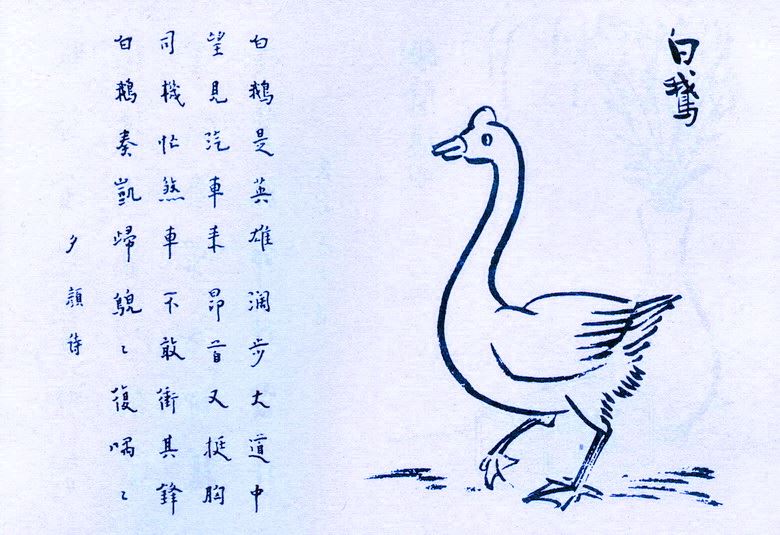 白鵞
白鵝是英雄 濶步大道中
望見汽車来 昂首又挺胸
司機忙煞車 不敢衝其鋒
白鵝奏凱歸 鶃〻復喁〻
夕顔詩